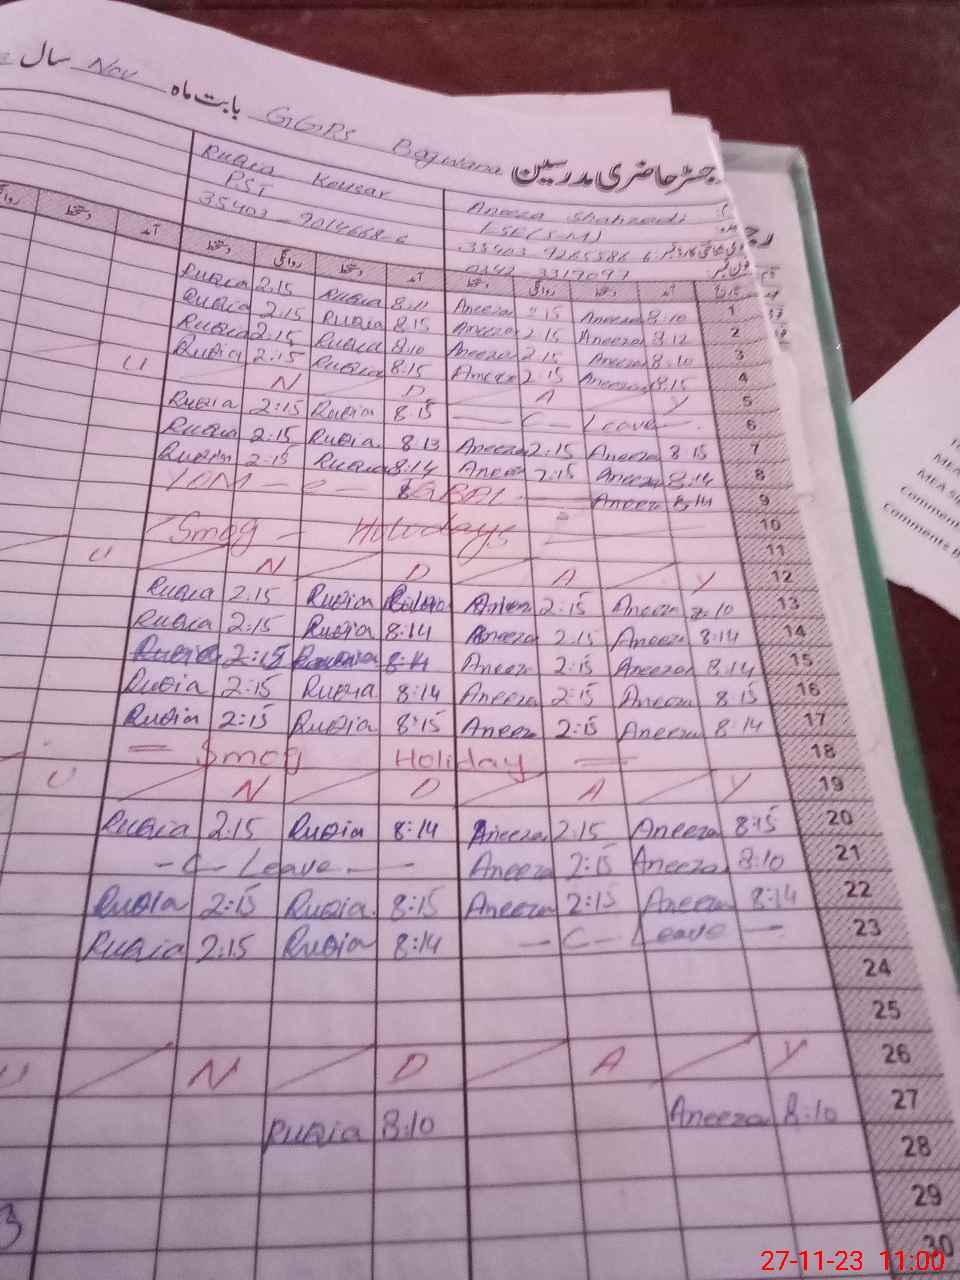 رجسٹر حاضری مدرسین GGPS Bajwana بابت ماہ Nov سال
Aneeza Shahzadi
Rubia Kousar
PST
آمد دستخط روانگی دستخط آمد دستخط روانگی دستخط
1 8:10 Aneeza 2:15 Aneeza 8:11 Rubia 2:15 Rubia
2 8:12 Aneeza 2:15 Aneeza 8:15 Rubia 2:15 Rubia
3 8:10 Aneeza 2:15 Aneeza 8:10 Rubia 2:15 Rubia
4 8:15 Aneeza 2:15 Aneeza 8:15 Rubia 2:15 Rubia
5 U N D A Y
6 - C - Leave - 8:15 Rubia 2:15 Rubia
7 8:15 Aneeza 2:15 Aneeza 8:13 Rubia 2:15 Rubia
8 8:14 Aneeza 2:15 Aneeza 8:14 Rubia 2:15 Rubia
9 8:14 Aneeza YOM - e -
10 Smog - Holidays
11
12 U N D A Y
13 8:10 Aneeza 2:15 Rubia 2:15 Rubia
14 8:14 Aneeza 2:15 Aneeza 8:14 Rubia 2:15 Rubia
15 8:14 Aneeza 2:15 Aneeza 8:14 Rubia 2:15 Rubia
16 8:15 Aneeza 2:15 Aneeza 8:14 Rubia 2:15 Rubia
17 8:14 Aneeza 2:15 Aneeza 8:15 Rubia 2:15 Rubia
18 Smog Holiday
19 U N D A Y
20 8:15 Aneeza 2:15 Aneeza 8:14 Rubia 2:15 Rubia
21 8:10 Aneeza 2:15 Aneeza - C - Leave -
22 8:14 Aneeza 2:15 Aneeza 8:15 Rubia 2:15 Rubia
23 - C - Leave - 8:14 Rubia 2:15 Rubia
24
25
26 U N D A Y
27 8:10 Aneeza 8:10 Rubia
28
29
30
MEA
Comments
27-11-23 11:00